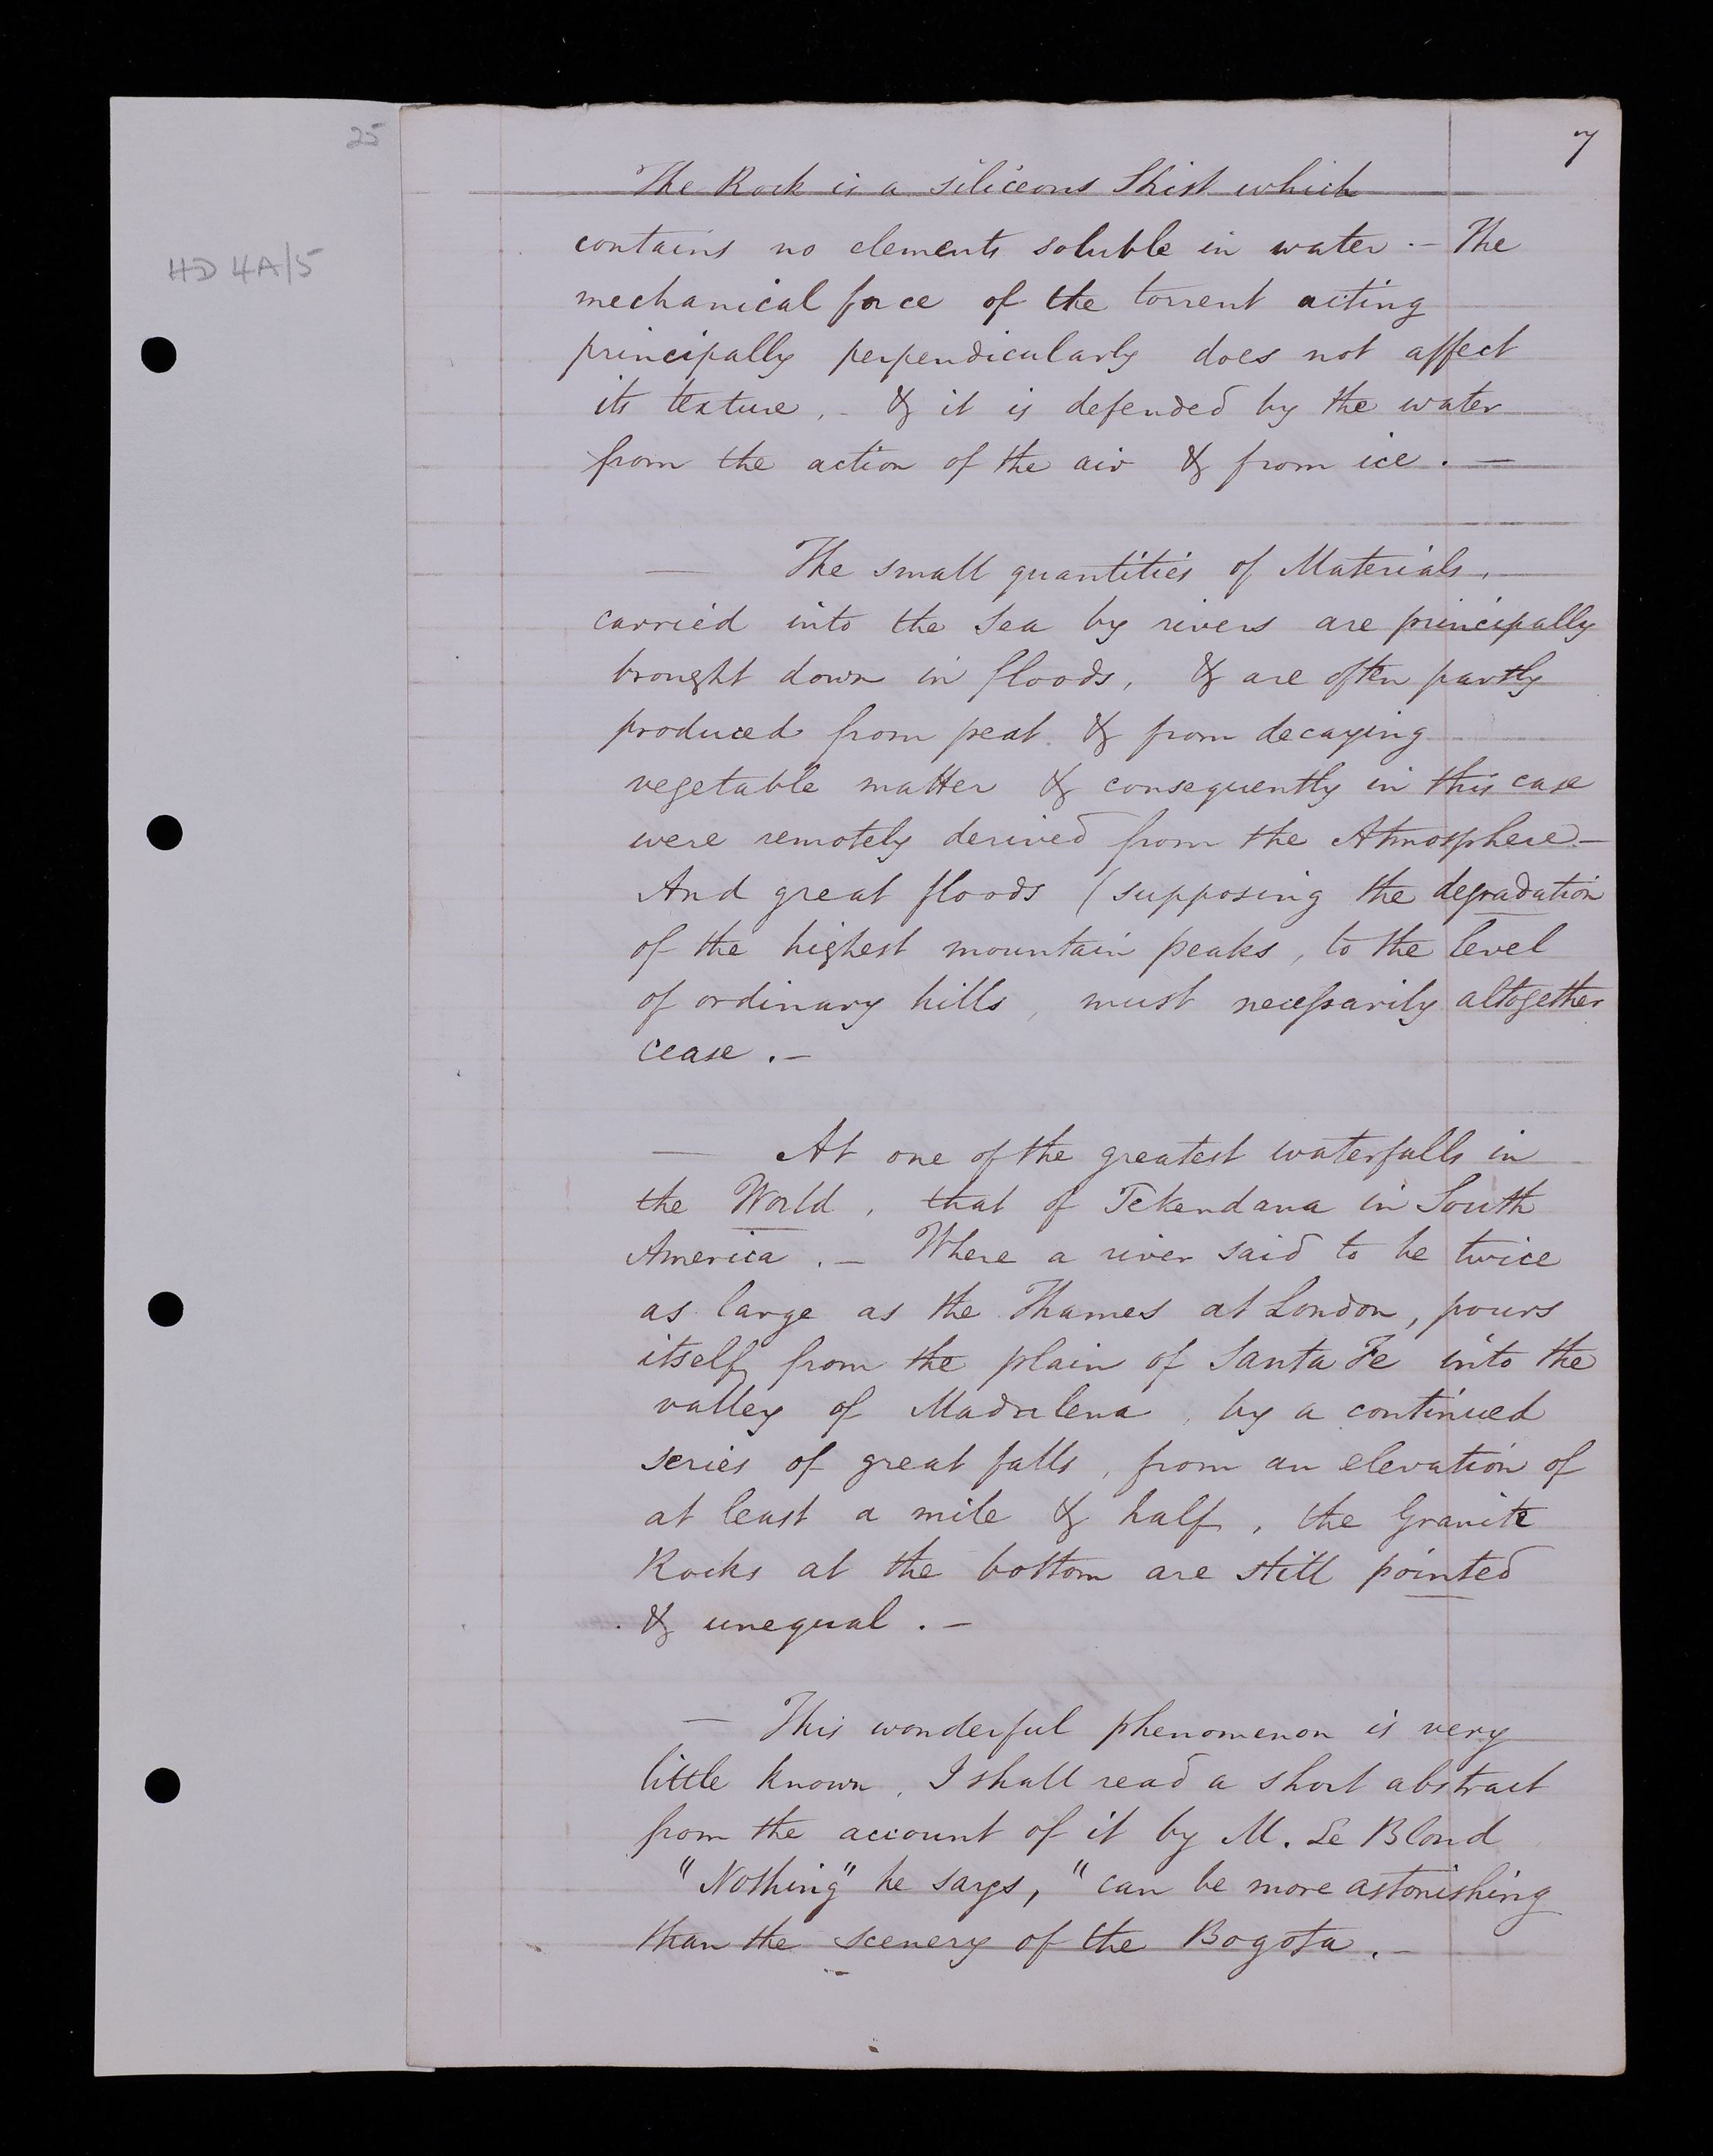 25
7
HD 4A/5
The Rock is a siliceous Shist which
contains no elements soluble in water. — The
mechanical force of the torrent acting
principally perpendicularly does not affect
its texture, - & it is defended by the water
from the action of the air & from ice. —
— The small quantities of Materials,
carried into the Sea by rivers are principally
brought down in floods, & are often partly
produced from peat & from decaying
vegetable matter & consequently in this case
were remotely derived from the Atmosphere —
And great floods (supposing the degradation
of the highest mountain peaks, to the level
of ordinary hills, must necessarily altogether
cease. —
— At one of the greatest waterfalls in
the World, that of Tekendana in South
America. — Where a river said to be twice
as large as the Thames at London, pours
itself from the plain of Santa Fe into the
valley of Madalena, by a continued
series of great falls, from an elevation of
at least a mile & half, the Granite
Rocks at the bottom are still pointed
& unequal. —
— This wonderful phenomenon is very
little known, I shall read a short abstract
from the account of it by M. Le Blond
"Nothing" he says, "can be more astonishing
than the scenery of the Bogota. —